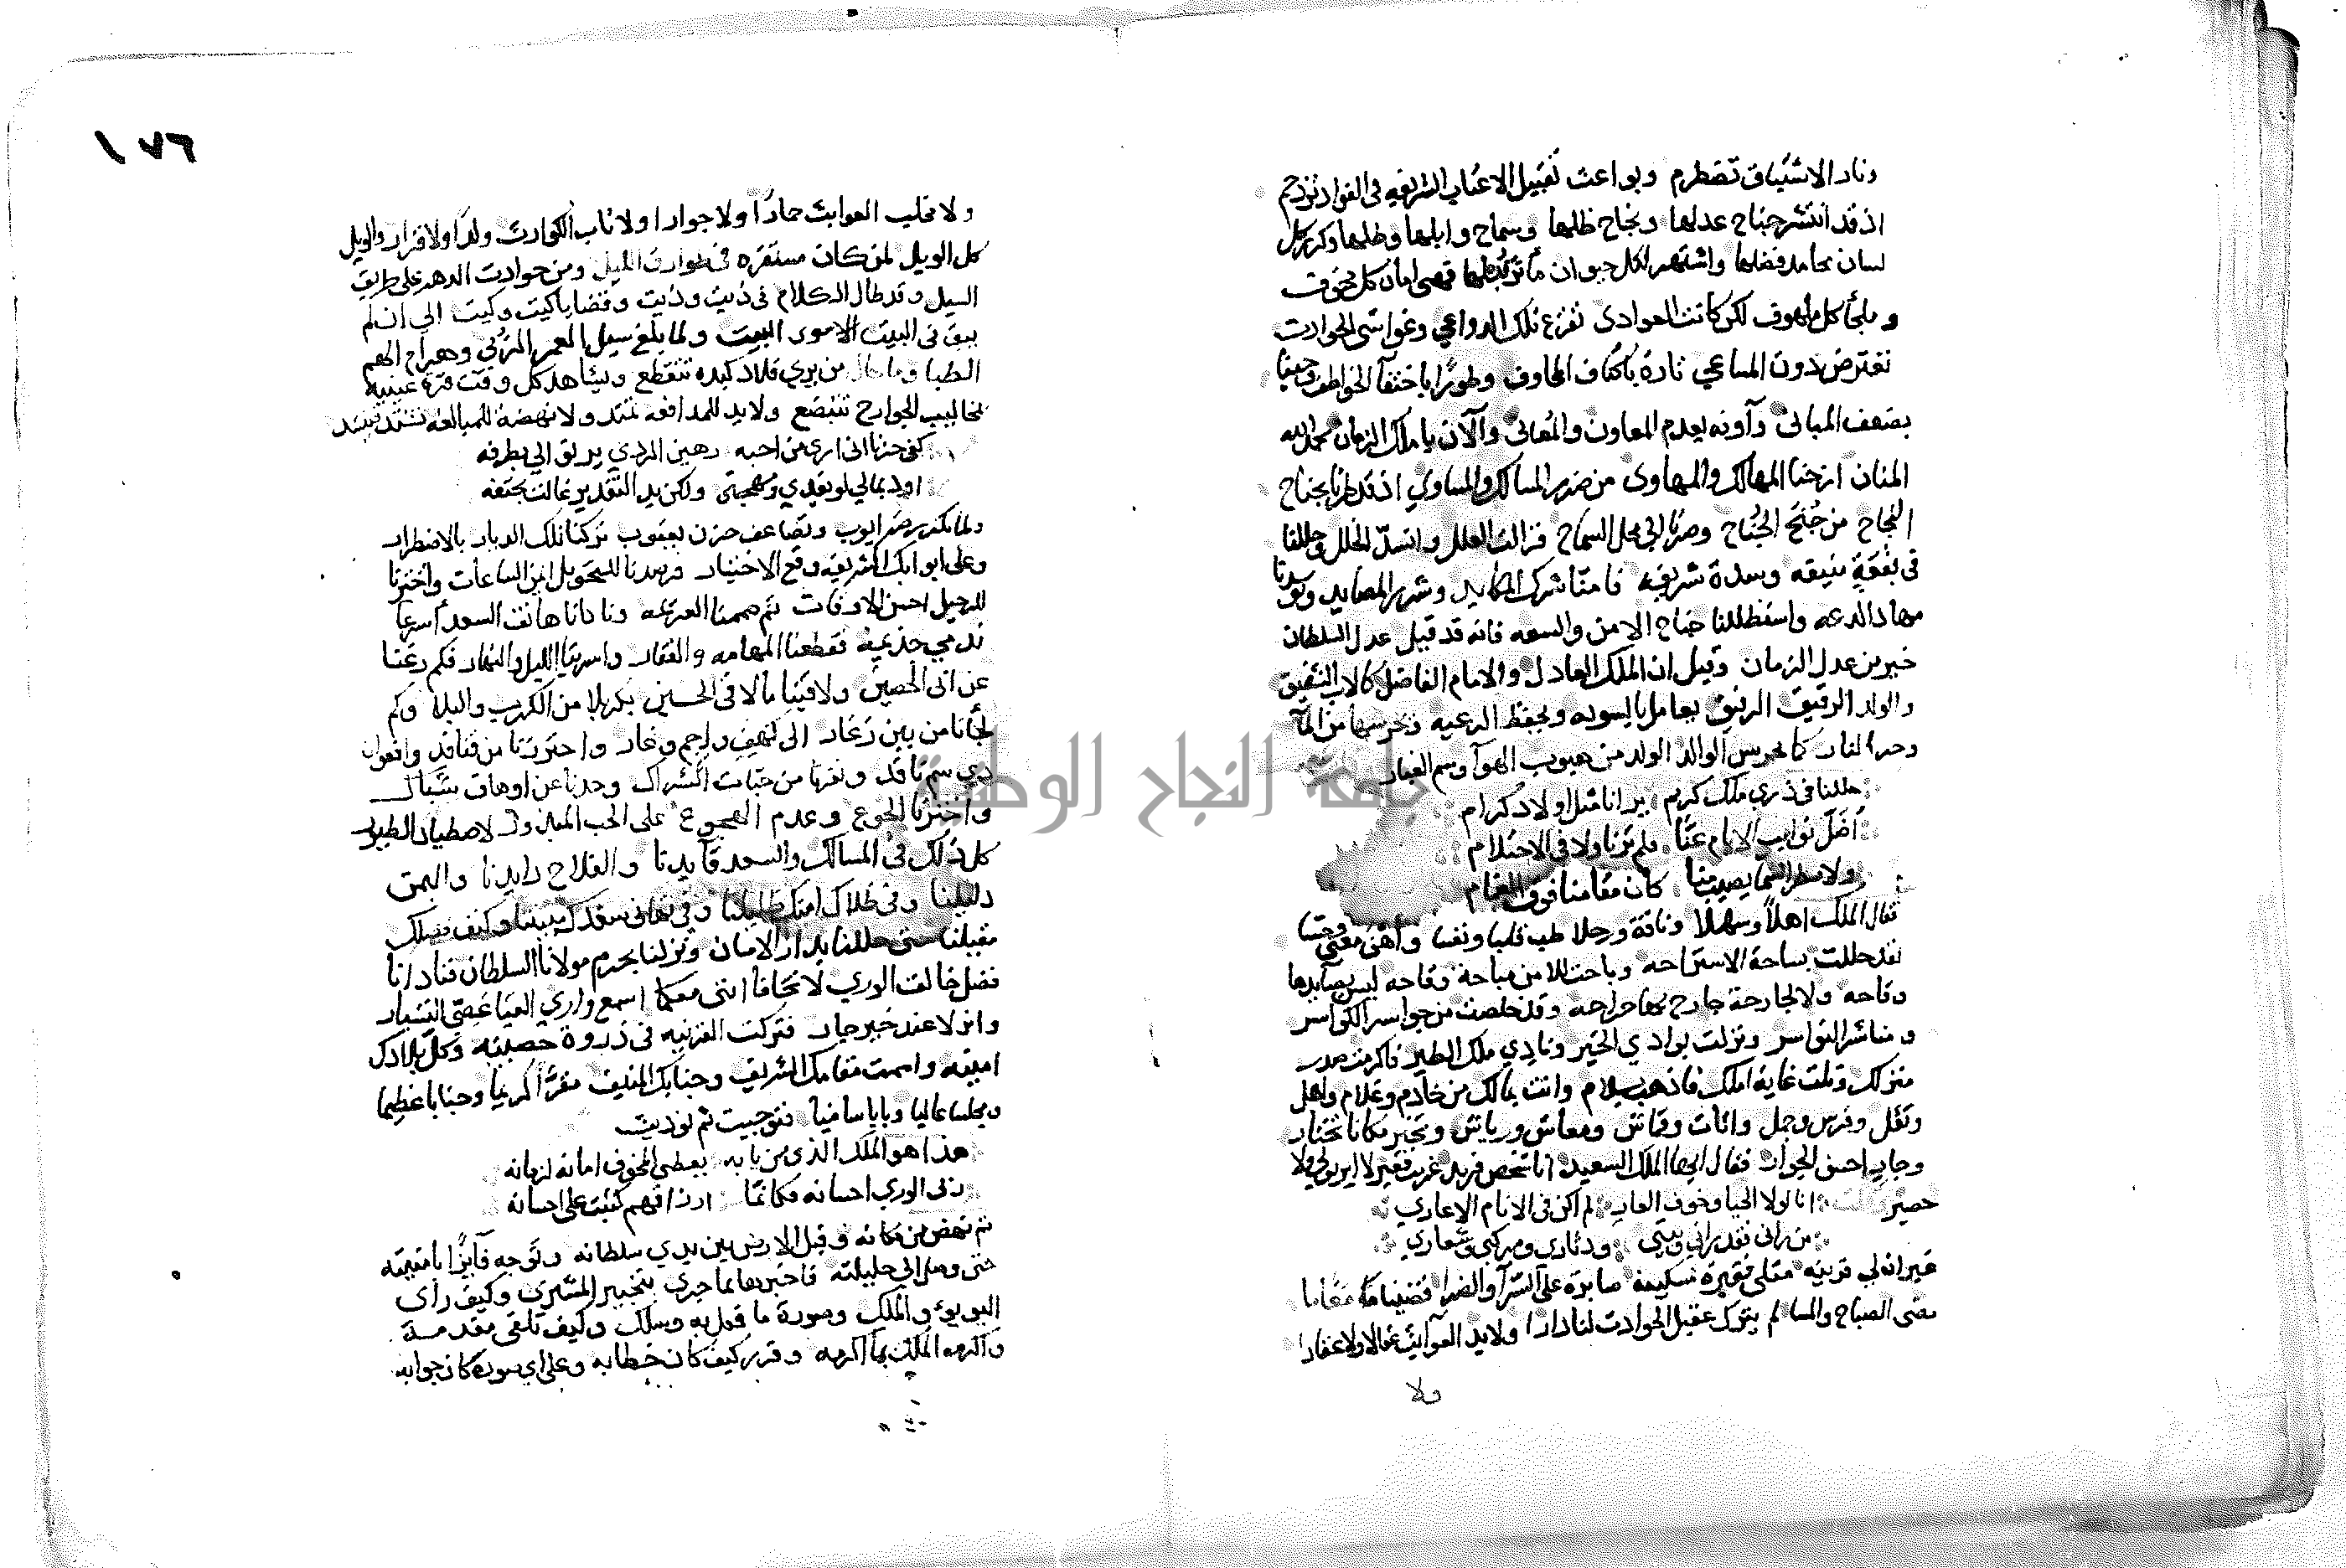 ونار الاشتياق تضطرم وبواعث تقبيل الاعتاب الشريفه في الفواد تزدحم
اذ قد انتشر جناح عدلها ونجاح ظلها وسماح وابلها وطلها وكرر كل
لسان محامد فضلها واشتهر لكل حيوان مآثر فهي امان كل مخوف
وملجأ كل ملهوف لكن كانت العوادى تفزع تلك الدواعي وغواشى الحوادث
تعترض دون المساعي تارة باكناف المخاوف وطورًا باختطآ الخواطف وحينا
بضعف المبانى وآونه بعدم المعاون والمُعانى والآن يا ملك الزمان بحمد الله
المنان ازحنا المهالك والمهاوى من ضرر المسالك والمساوي اذ قد طرنا بجناح
النجاح من جُنْحَ الجُنَاح وصرنا الى محل السماح فزالت العلل وانسدّ الخلل وحللنا
فى بُقْعَةٍ منيفه وسدة شريفه فامنّا شرك المكايد وشرر المصايد وتوسدنا
مهاد الدعه واستظللنا جناح الامن والسعه فانه قد قيل عدل السلطان
خير من عدل الزمان وقيل ان الملك العادل والامام الفاضل كالاب الشفيق
والوالد الرقيق الرفيق يعامل بالسويه ويحفظ الرعيه ويحرسها من المآ
وحر النار كما يحرس الوالد الولد من هبوب الهوآ وسم الغبار
حللنا فى ذري ملك كريم يرانا مثل اولاد كرام
اَضَلّ نوايب الايام عنّا فلم ترنا ولا فى الاحتلام
ولا مطر السما يصيب منا كان مقامنا فوق الغمام
فقال الملك اهلًا وسهلا وناقة ورحلا طب قلبا ونفسا وأهْنَ معنًى وحسا
فقد حللت بساحة الاستراحه وباحت للامن مباحة وقاحه ليس بصآيدها
وقاحه ولا لجارحة جارح بها جراحه وقد خلصت من جواسر الكواسر
ومناشر النواسر ونزلت بوادي الخير ونادي ملك الطير فاكرمت صدر
منزلك ونلت غاية املك فاذهب بسلام وانت بمالك من خادم وغلام واهل
وثقل وفرس وجمل واثاث وقماش ومعاش ورياش وتخير مكانا تختار
وجارٍ احسن الجوار فقال ايها الملك السعيد انا شخص فريد غريب فقير لا ابريق لي ولا
حصير انا لولا الحيا وخوف العار لم اكن فى الانام الا عاري
من رانى فقد راني وبيتي ودثارى ومركبي وشعاري
غير انه لى قرينه مثلي فقيرة مسكينه صابره على السرآ والضرا فضينا معًا
مضى الصباح والمسا لم يترك عقيل الحوادث لنا دارا ولا يد العوآبث عالا ولا عقارا
ولا
١٧٦
ولا مخلب العوابث حمادًا ولا جوادا ولا ناب الكوارث ولدًا ولا قرار والويل
كل الويل لمن كان مستقره فى طوارق الليل ومن حوادث الدهر على طريق
السيل وقد طال الكلام فى ذيت وذيت وقضايا كيت وكيت الى ان لم
يبق فى البيت الاسوى البيت ولما يلغ سيل العمر الزُبى وهم
الطبا وما حال من يري فلاذ كبده تتقطع ويشاهد كل وقت قرة عينيه
بمخاليب الجوارح تتبضع ولا يد للمدافعه تمتد ولا نهضة للمبالغه تشتد
كفى حزنا انى ارى من احبه رهين الردي يرنق الي بطرفه
اود بمالي لو يفدي ومهجتى ولكن يد التقدير غالت بحتفه
ولما تكدر صبر ايوب وتضاعف حزن يعقوب تركنا تلك الديار بالاضطرار
وعلى ابوابك الشريفه وقع الاختيار فرصدنا للتحويل ايمن الساعات واخترنا
للرحيل احسن الاوقات ثم صممنا العزيمه ونادانا هاتف السعد أسرعا
ندمي جذيمه فقطعنا المهامه والقفار واسرينا الليل والنهار فكم رغنا
عن ابى الحصين ولاقينا ما لا قى الحسين بكربلا من الكرب والبلا وكم
لجأنا من بين زغار الى كهف واجم وغار واحترزنا من قنافذ وافعوان
ذي سم ناقد ونفرنا من حبات الشراك وحدنا عن اوهاق شباك
واخترنا الجوع وعدم الهجوع على الحب المبذول لاصطياد الطيور
كل ذلك فى المسالك والسعد قآيدنا والفلاح رايدنا واليمن
دليلنا وفى ظلال امنك ظليلنا وفى مغانى سعدك مبيتنا وكنف فضلك
مقيلنا حتى حللنا بدار الامان ونزلنا بحرم مولانا السلطان فنادانا
فضل خالق الوري لا تخافا اننى معكما اسمع وارى القيا عصى التسيار
وانزلا عند خير جار فتركت القرينه فى ذروة حصينه وكل بلادك
امينه واممت مقامك الشريف وجنابك المنيف مقرًّا كريما وجنابا عظيما
ومجلسا عاليا وبابا ساميا فتوجهت ثم نوديت
هذا هو الملك الذى من بابه يعطى المخوف امانة لزمانه
زنى الورى احسانه فكانما ارزاقهم كتبت على احسانه
ثم نهض من مكانه وقبل الارض بين يدي سلطانه وتوجه فآيزًا بامنيته
حتى وصل الي حليلته فاخبرها بما جرى بتخيير المشترى وكيف رأى
اليويوء والملك وصورة ما فعل به وسلك وكيف تلقى مقدمه
واكرمه الملك بما اكرمه وقرر كيف كان خطابه وعلى اي صورة كان جوابه
جامعة النجاح الوطنية